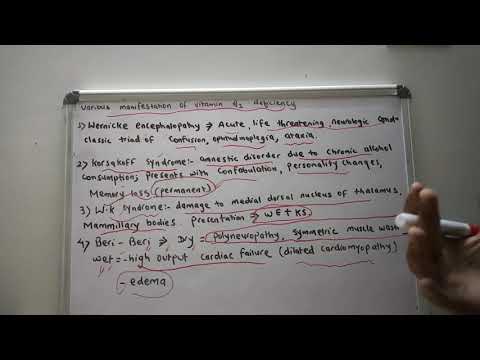 various manifestation of vitamin B1 deficiency
1) Wernicke encephalopathy ⇒ Acute, life threatening neurologic cond-
classic triad of Confusion, ophthalmoplegia, ataxia.
2) Korsakoff Syndrome:- amnestic disorder due to chronic alcohol
Consumption; presents with Confabulation, personality changes,
Memory loss (permanent)
3) W-K Syndrome:- damage to medial dorsal nucleus of thalamus,
Mammillary bodies. presentation ⇒ WE + KS.
4) Beri-Beri ⇒ Dry = polyneuropathy, Symmetric muscle wast
wet = - high output cardiac failure (dilated cardiomyopathy)
- edema